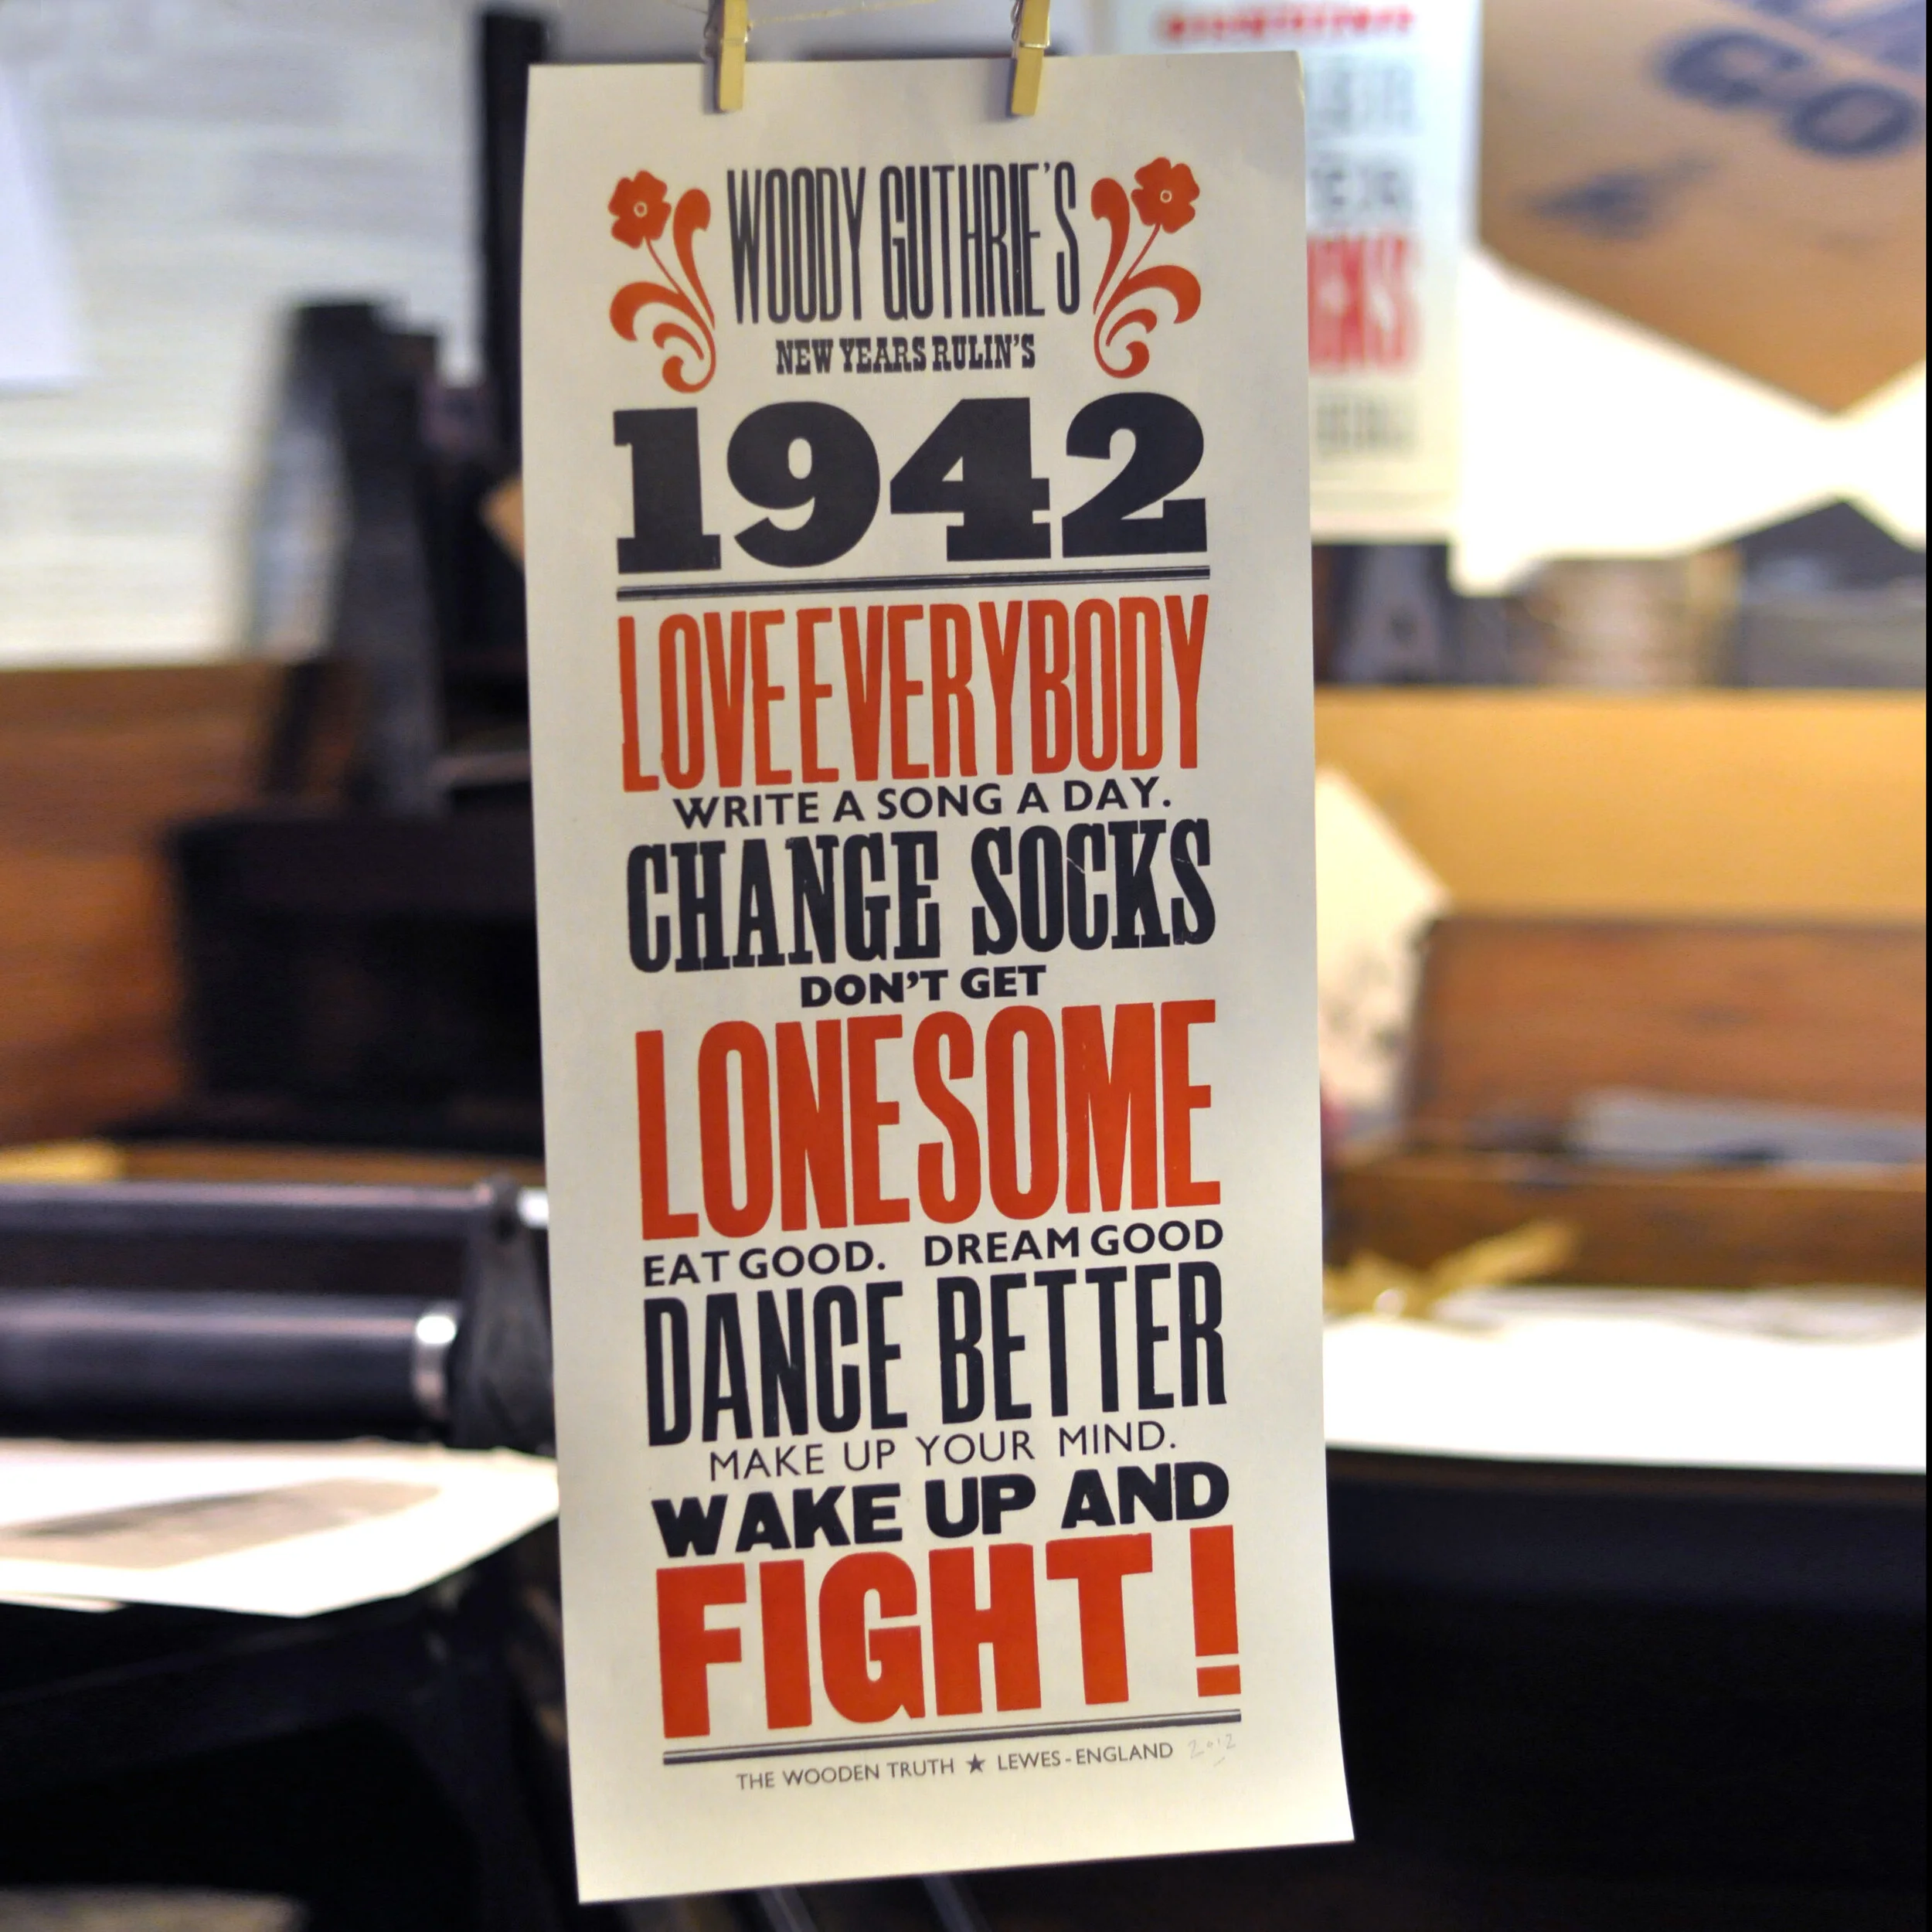 WOODY GUTHRIE'S
NEW YEARS RULIN'S
1942
LOVE EVERYBODY
WRITE A SONG A DAY.
CHANGE SOCKS
DON'T GET
LONESOME
EAT GOOD. DREAM GOOD
DANCE BETTER
MAKE UP YOUR MIND.
WAKE UP AND
FIGHT!
THE WOODEN TRUTH ★ LEWES-ENGLAND 2012
GO